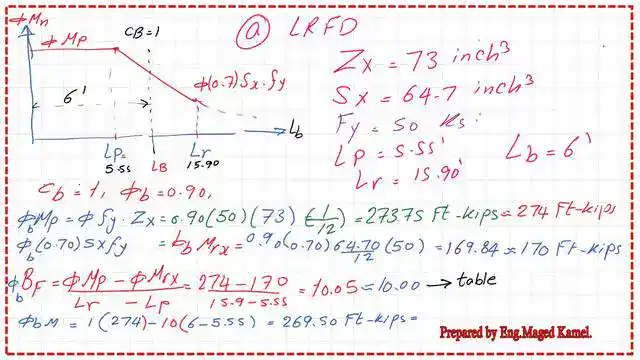 ⓐ LRFD
ΦMn
CB=1
ΦMp
Φ(0.7)Sx.Fy
6'
Lb
Lp=
5.55
LB
Lr
15.90
Zx = 73 inch³
Sx = 64.7 inch³
Fy = 50 Ksi
Lp = 5.55'
Lr = 15.90'
Lb = 6'
Cb = 1, Φb = 0.90,
ΦbMp = Φ Fy. Zx = 0.90(50)(73)(1/12) = 273.75 FT-kips ≈ 274 FT-kips
Φb(0.70)SxFy = Φb Mrx = 0.90(0.70)64.70/12(50) = 169.84 ≈ 170 FT-kips
ΦbBF = ΦMp - ΦMrx / Lr - Lp = 274-170 / 15.9-5.55 = 10.05 ≈ 10.00 → table
ΦbM = 1(274)-10(6-5.55) = 269.50 FT-kips =
Prepared by Eng.Maged Kamel.